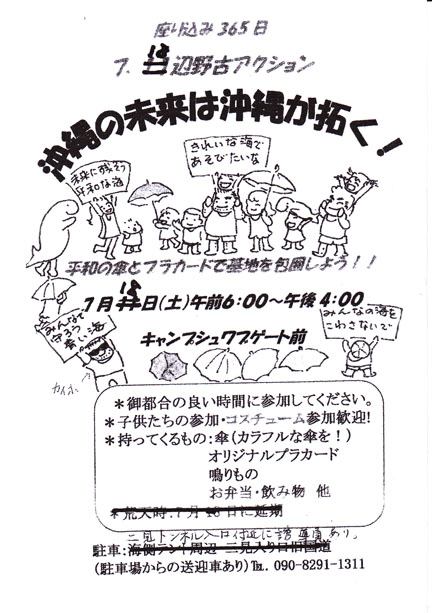 座り込み365日
7.18辺野古アクション
沖縄の未来は沖縄が拓く！
きれいな海で
あそびたいな
未来に残そう
平和な海
平和の傘とプラカードで基地を包囲しよう！！
7月18日(土)午前6:00～午後4:00
みんなで
守ろう
青い海
みんなの海を
こわさないで
キャンプシュワブゲート前
＊御都合の良い時間に参加してください。
＊子供たちの参加・コスチューム参加歓迎！
＊持ってくるもの：傘（カラフルな傘を！）
オリジナルプラカード
鳴りもの
お弁当・飲み物 他
＊荒天時：7月18日に延期
二見トンネル入口付近に誘導員あり。
駐車：海側テント周辺 二見入り口旧国道
(駐車場からの送迎車あり)℡ 090-8291-1311